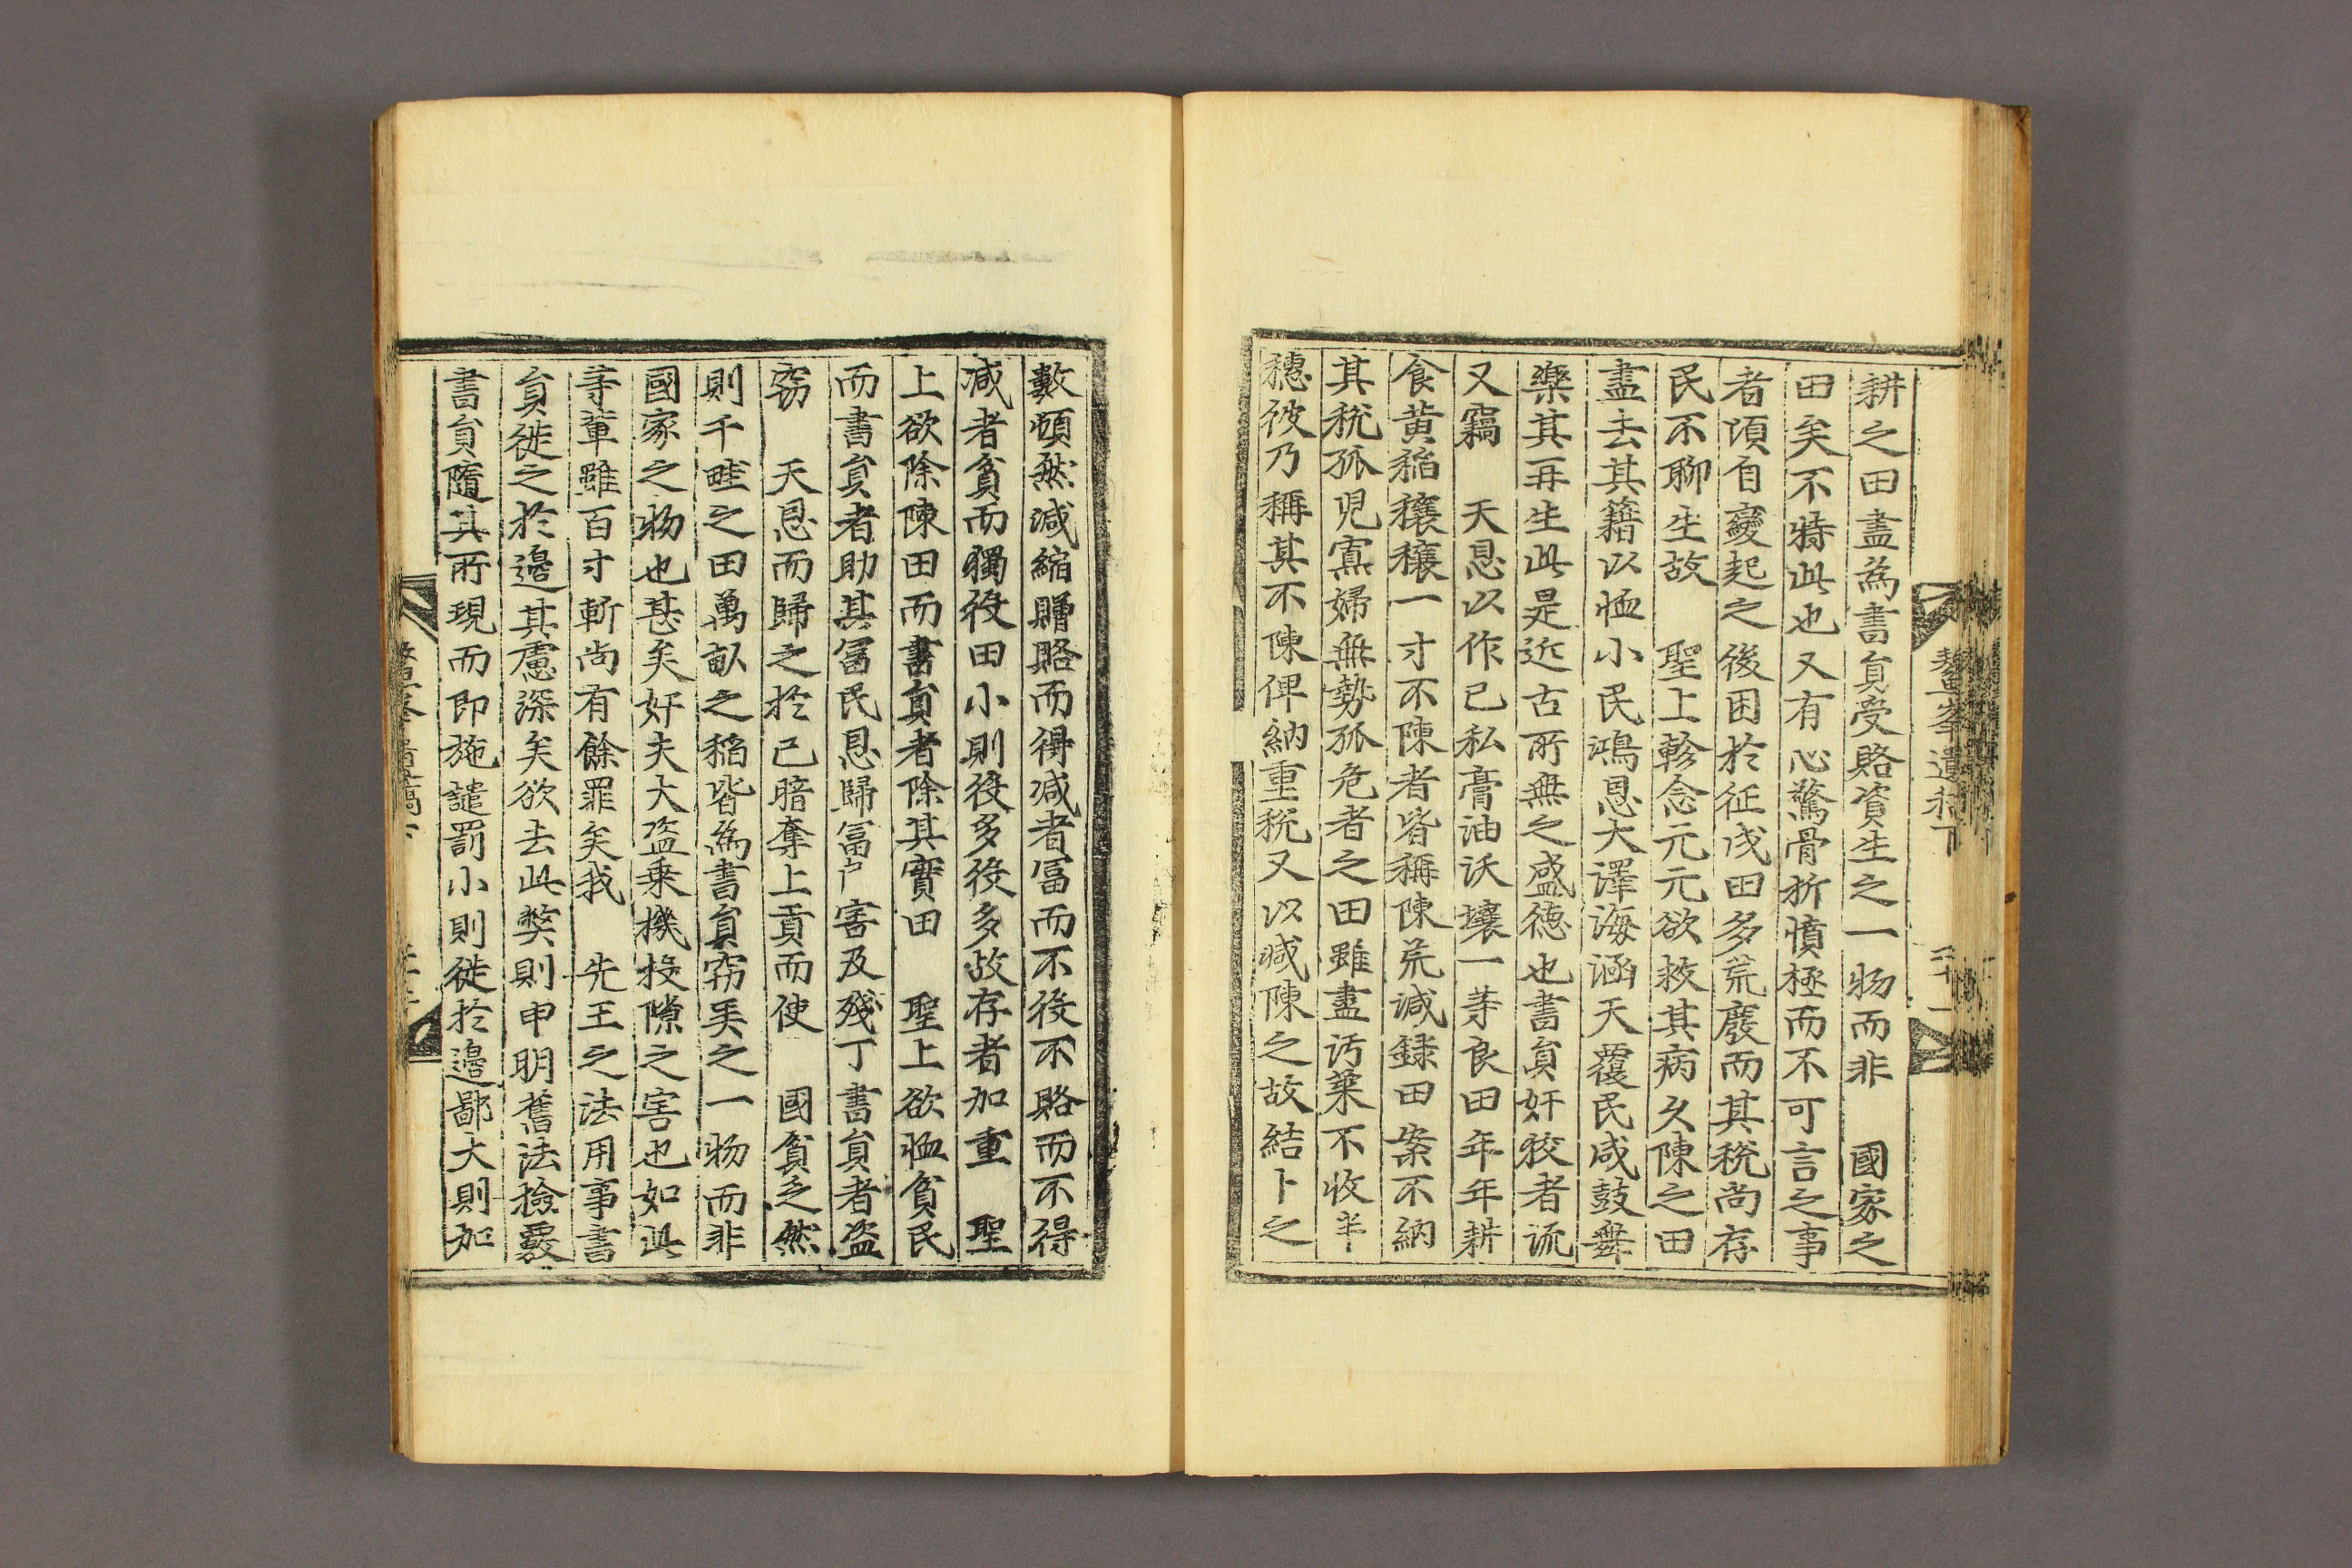 鰲峯遺稿下
二十一
耕之田盡爲書員受賂資生之一物而非　國家之
田矣不特此也又有心驚骨折憤極而不可言之事
者頃自變起之後困於征戍田多荒廢而其稅尚存
民不聊生故　聖上軫念元元欲救其病久陳之田
盡去其籍以恤小民鴻恩大澤海涵天覆民咸鼓舞
樂其再生此是近古所無之盛德也書員奸狡者流
又竊　天恩以作已私膏油沃壤一等良田年年耕
食黃稻穰穰一寸不陳者皆稱陳荒減錄田案不納
其稅孤兒寡婦無勢孤危者之田雖盡汚萊不收半
穗彼乃稱其不陳俾納重稅又以减陳之故結卜之
數頓然减縮贈賂而得减者冨而不役不賂而不得
减者貧而獨役田小則役多役多故存者加重　聖
上欲除陳田而書員者除其實田　聖上欲恤貧民
而書員者助其冨民恩歸冨戶害及殘丁書員者盜
窃　天恩而歸之於己暗奪上貢而使　國貧乏然
則千畦之田萬畝之稻皆爲書員窃美之一物而非
國家之物也甚矣奸夫大盜乘機投隙之害也如此
等輩雖百寸斬尚有餘罪矣我　先王之法用事書
員徙之於邊其慮深矣欲去此弊則申明舊法撿覈
書員隨其所現而即施譴罰小則徙於邊鄙大則加